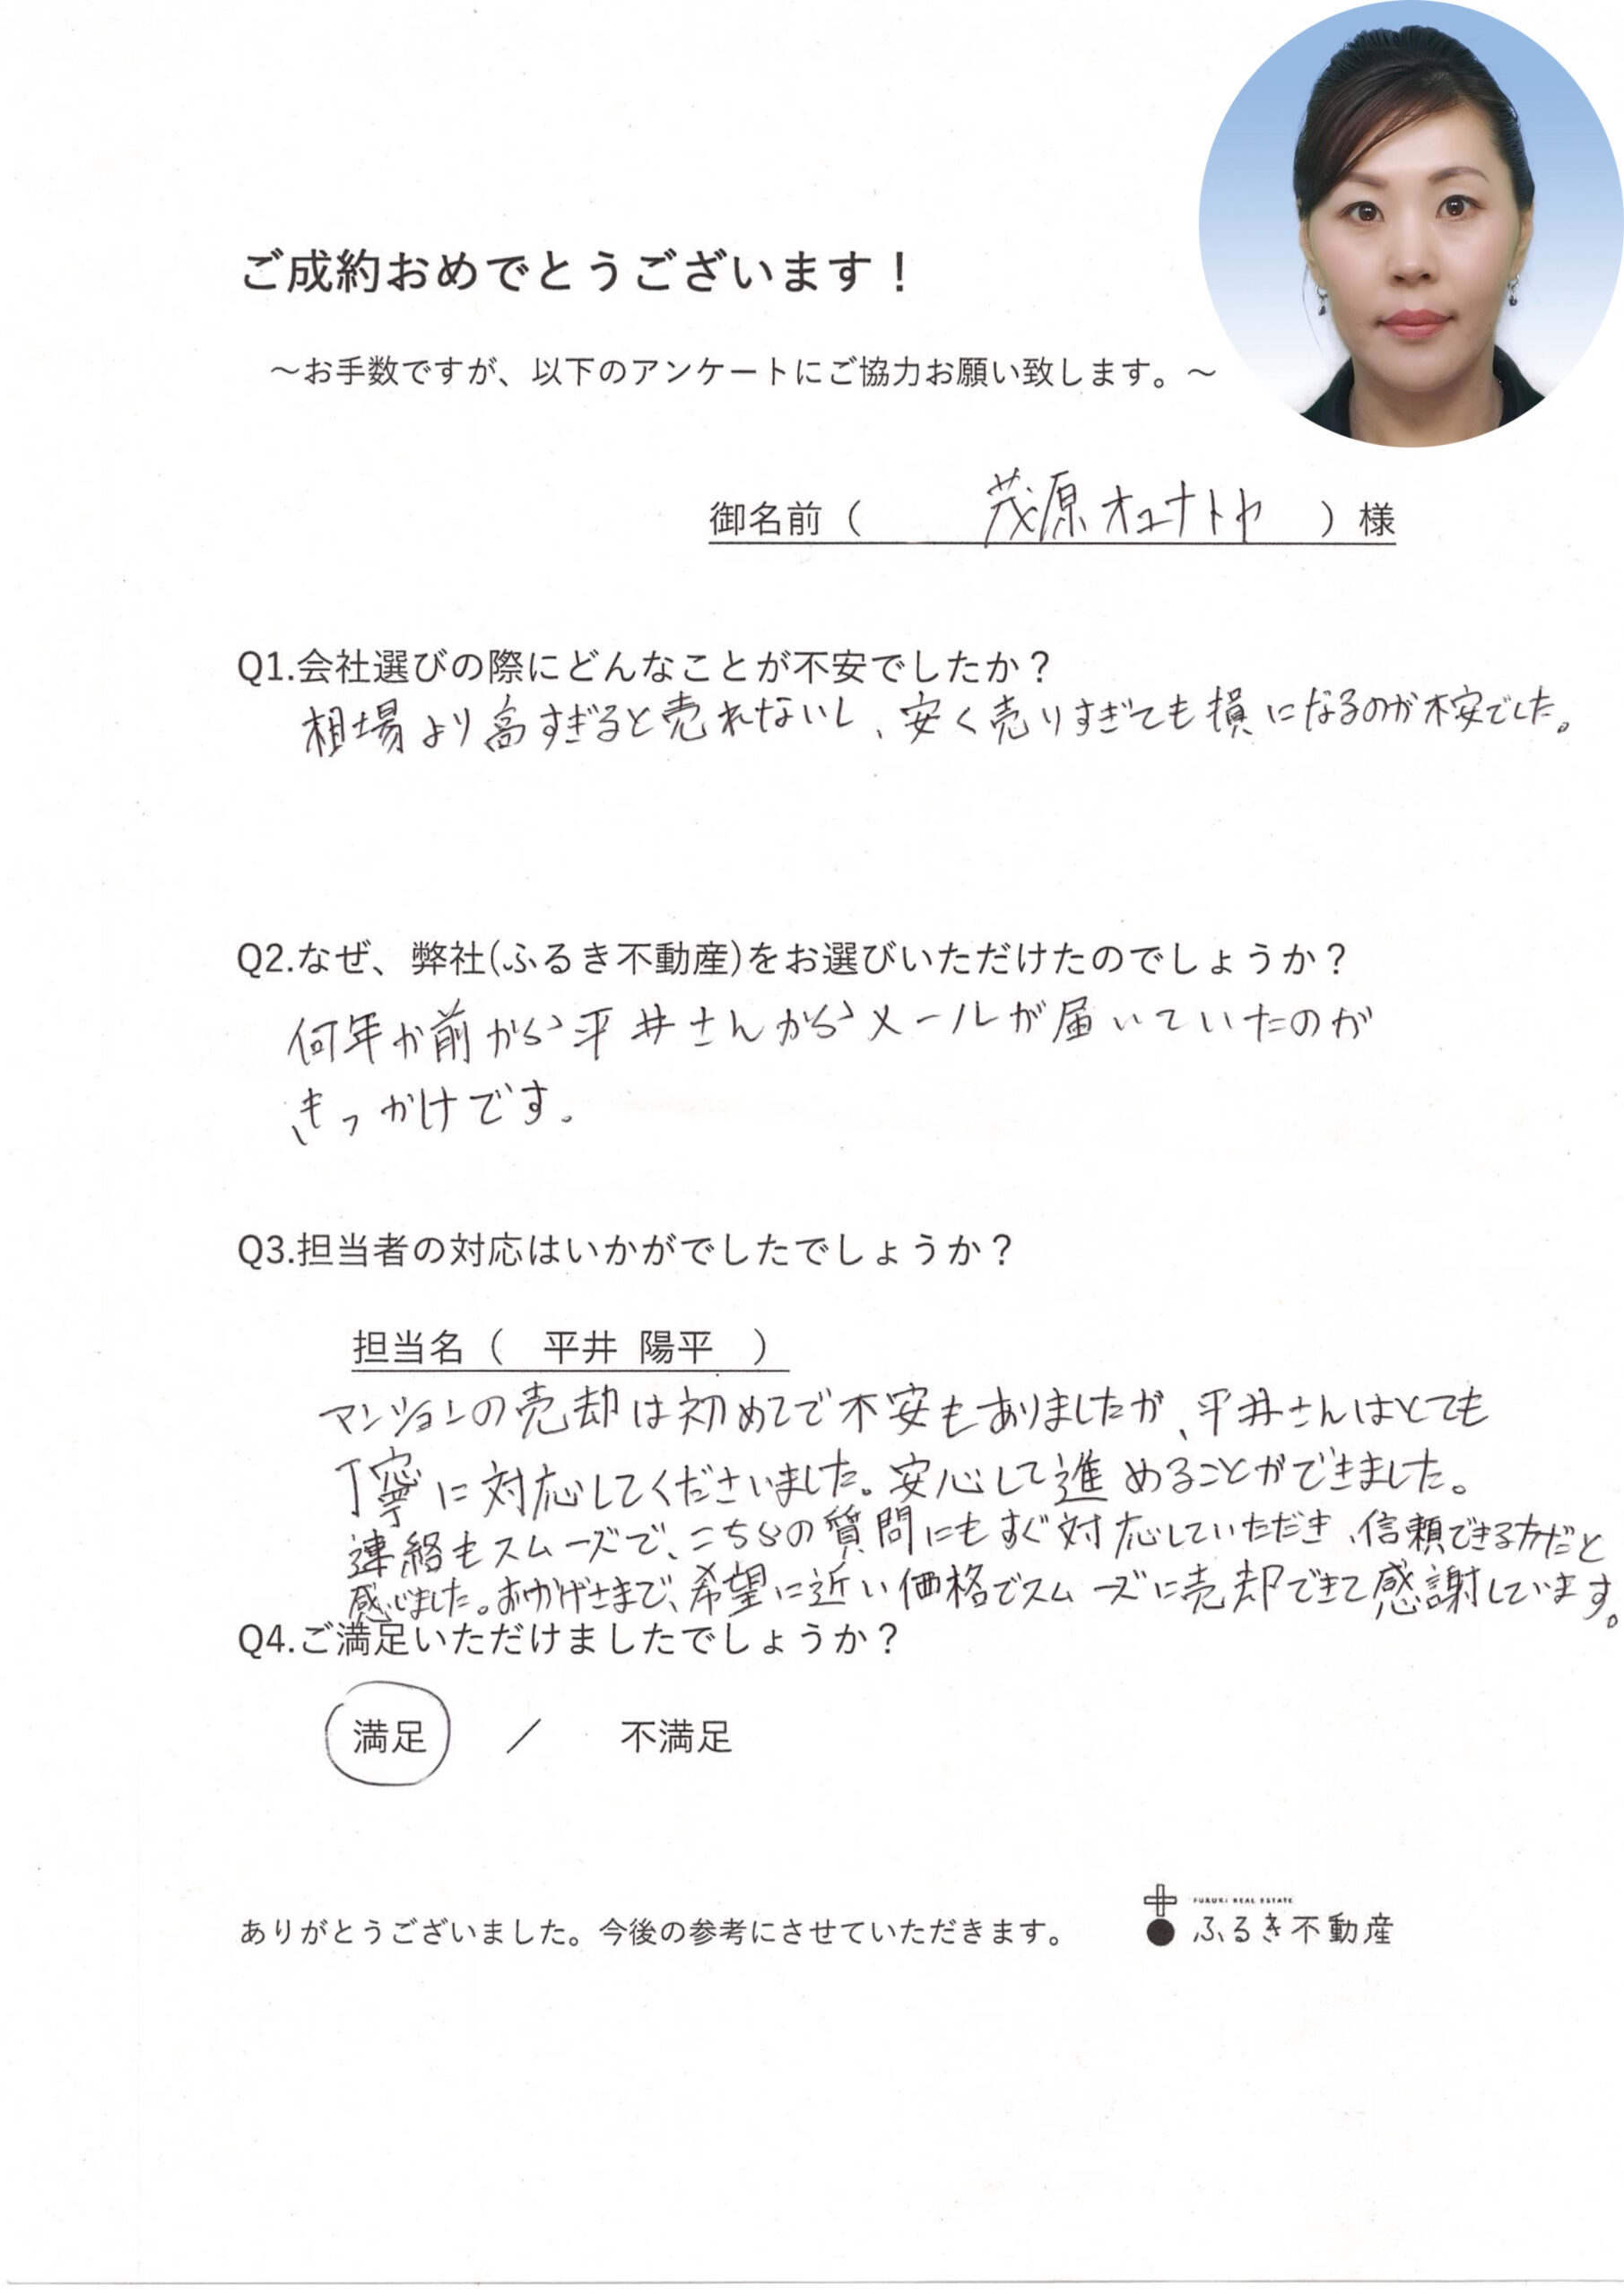 ご成約おめでとうございます！
～お手数ですが、以下のアンケートにご協力お願い致します。～
御名前（ 茂原オユナトヤ ）様
Q1.会社選びの際にどんなことが不安でしたか？
相場より高すぎると売れないし、安く売りすぎても損になるのが不安でした。
Q2.なぜ、弊社(ふるき不動産)をお選びいただけたのでしょうか？
何年か前から平井さんからメールが届いていたのが
きっかけです。
Q3.担当者の対応はいかがでしたでしょうか？
担当名（ 平井 陽平 ）
マンションの売却は初めてで不安もありましたが、平井さんはとても
丁寧に対応してくださいました。安心して進めることができました。
連絡もスムーズで、こちらの質問にもすぐ対応していただき、信頼できる方だと
感じました。おかげさまで、希望に近い価格でスムーズに売却できて感謝しています。
Q4.ご満足いただけましたでしょうか？
満足 ／ 不満足
FURUKI REAL ESTATE
ありがとうございました。今後の参考にさせていただきます。 ふるき不動産